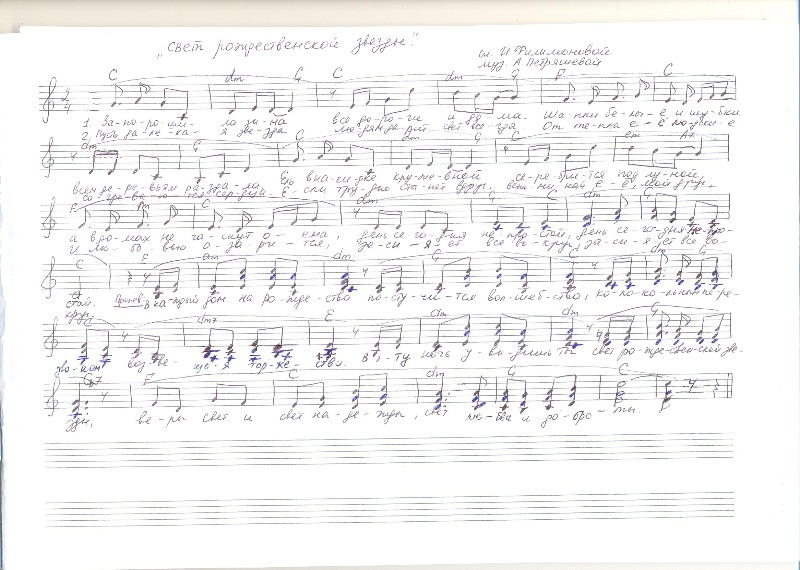 „Свет рождественской звезды".
сл. И Филимоновой
муз. А Петряшевой
C dm G C dm G F C
1. За-по-ро-ши- ла зи-ма все до-ро-ги и до ма. Шап-ки бе-лы-е и шуб-ки
2. Пусть да-ле-ка- я звез-да лю-дям да-рит свет все-гда От теп-ла е-ё люд-ски-е
dm G C G C em A7
всем де-ре-вьям раз-да-ла. В на-кид-ке кру-жев-ной се-ре-брит-ся под лу-ной
со-гре-ва-ют-ся серд-ца. Е-сли труд-но ста-нет вдруг, вспом-ни, как е-ё, мой друг,
F C dm G C dm G
а в до-мах не га-снут о-кна, день се-го-дня не про-стой, день се-го-дня не про-
И лю-бо-вью о-за-рит-ся, за-си-я-ет всё во-круг, за-си-я-ет всё во-
C E am dm G C dm G
стой. Припев: В каж-дый дом на ро-жде-ство по-сту-чит-ся вол-шеб-ство, ко-ло-коль-ным пе-ре-
круг.
C dm7 E dm G C dm G
зво-ном воз-ве- ща-я тор-же-ство. В э-ту ночь у-ви-дишь ты свет ро-жде-ствен-ской зве-
F C dm G C
зды, ве-ры свет и свет на-де-жды, свет люб-ви и до-бро-ты.